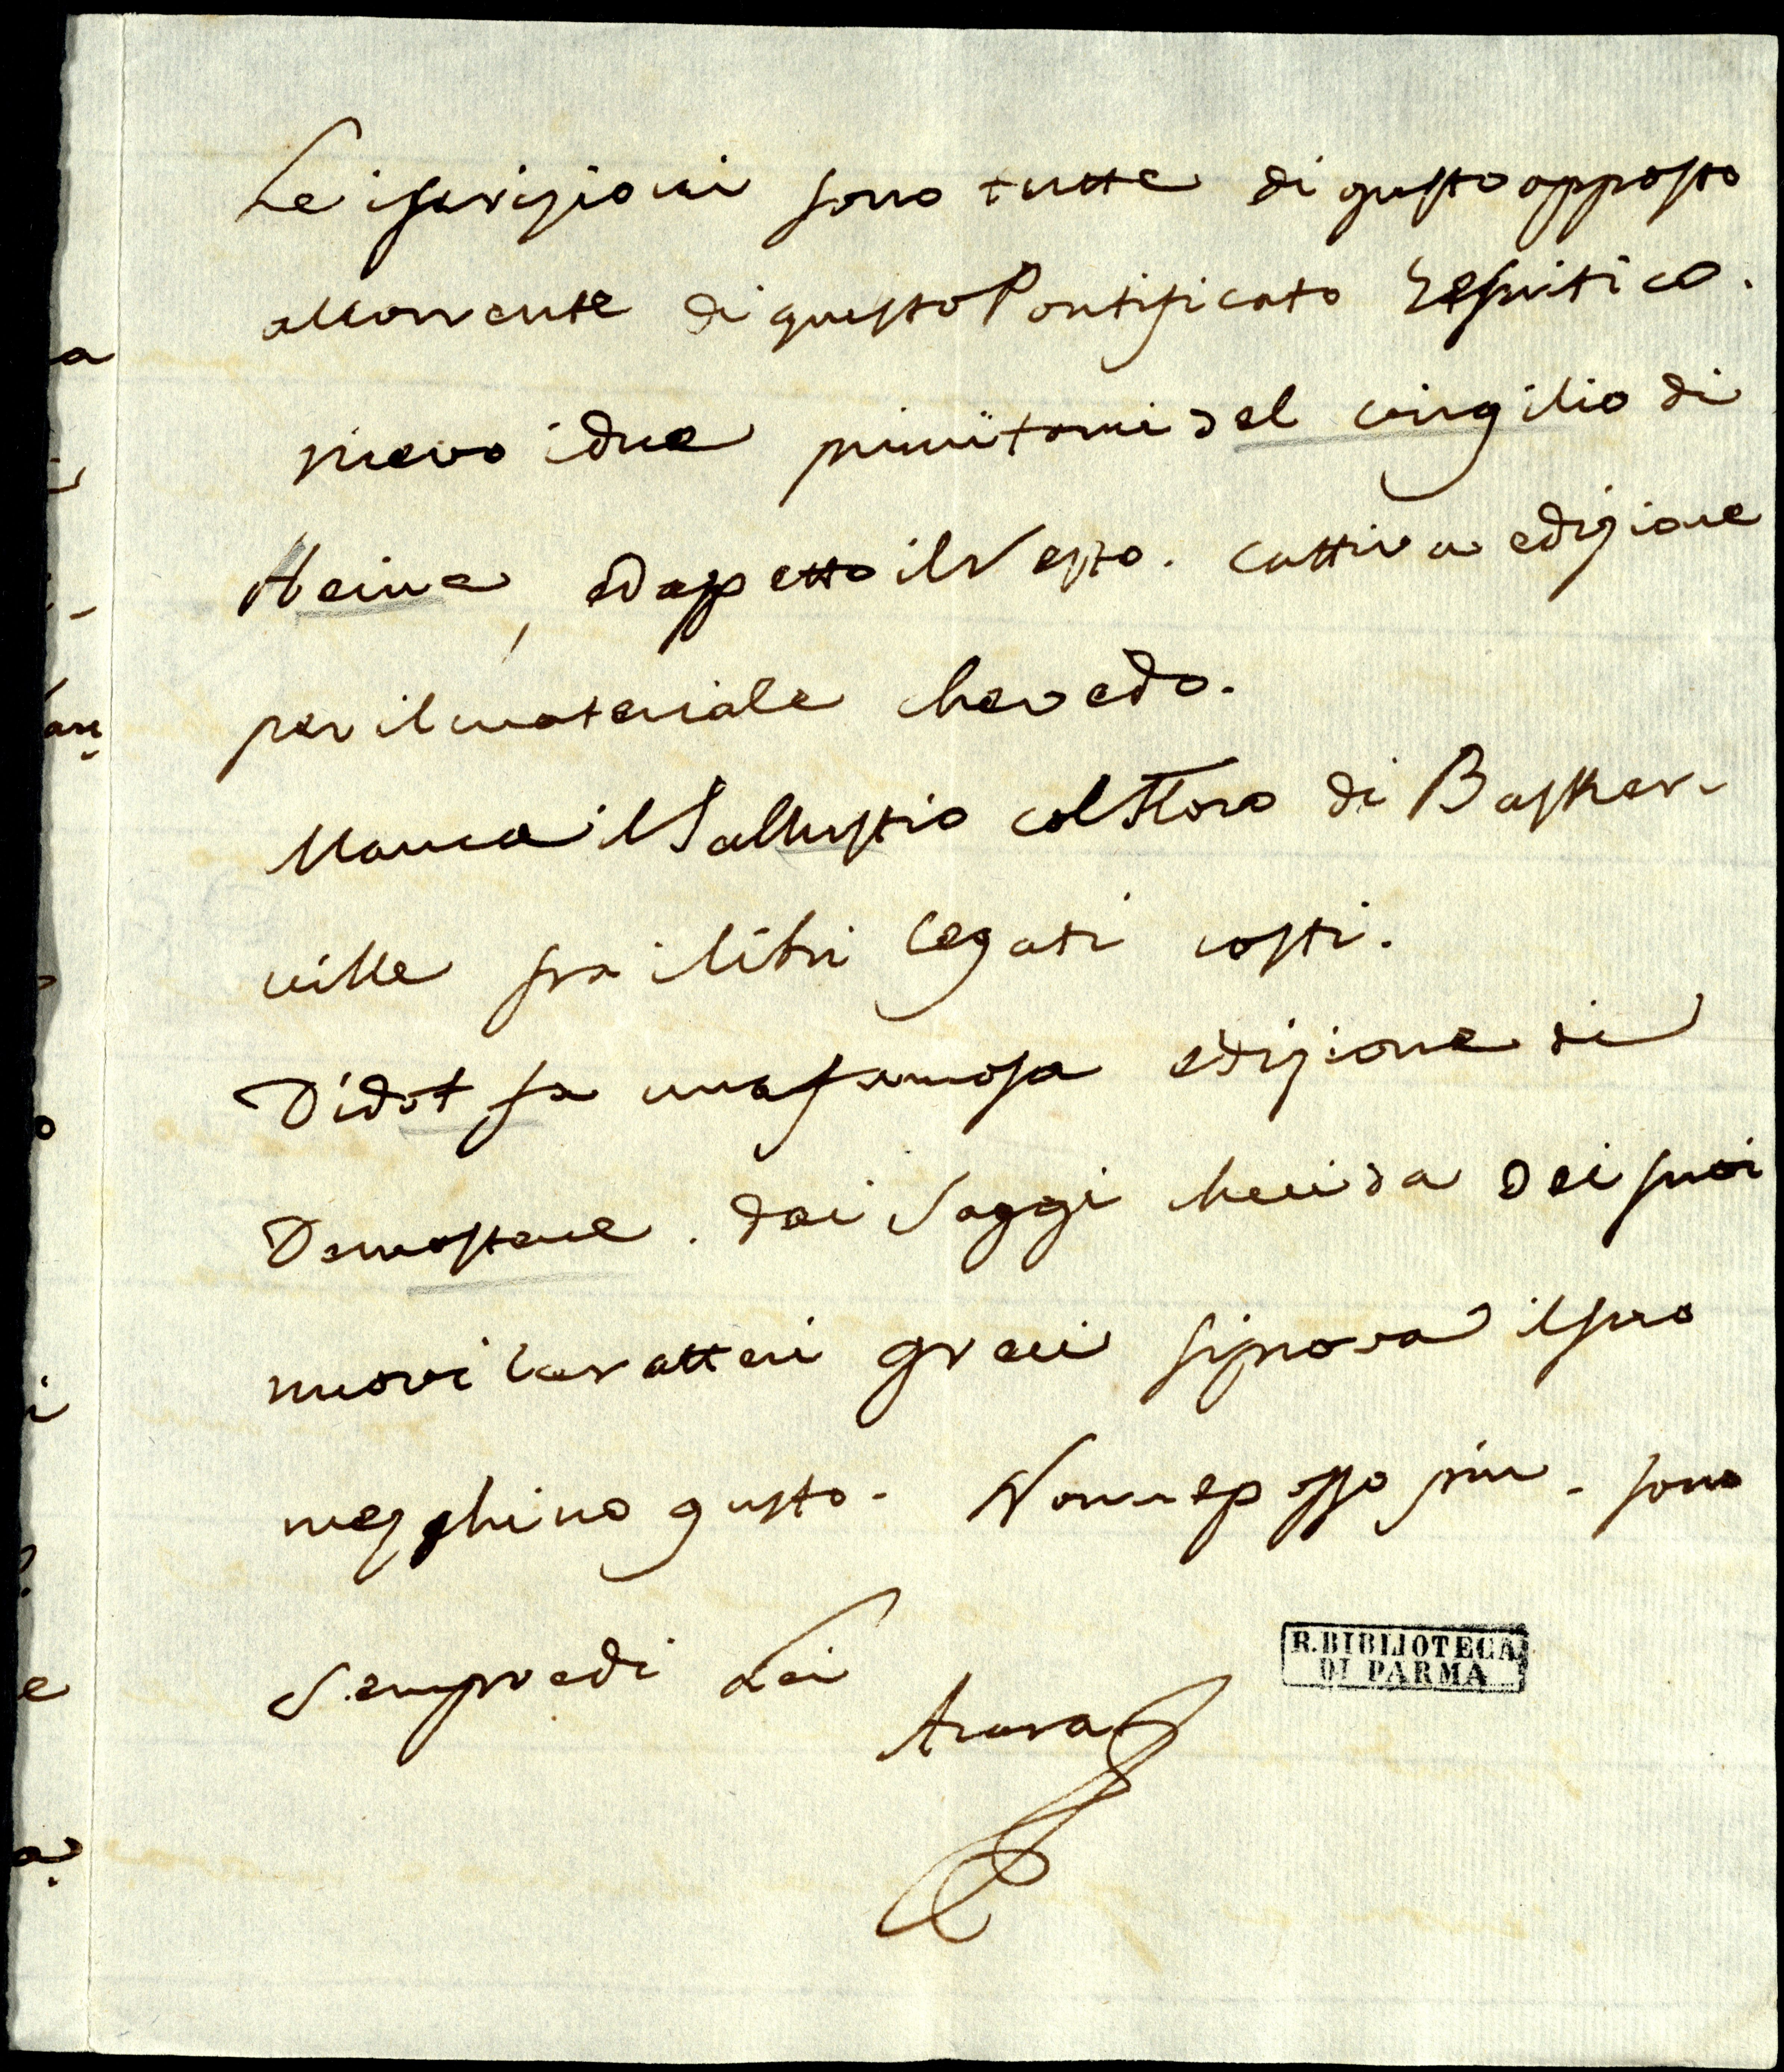 Le iscrizioni sono tutte di gusto opposto
al corrente di questo Pontificato Gesuitico.
ricevo i due primi tomi del Virgilio di
Heine, ed aspetto il resto. cattiva edizione
per il materiale che vedo.
Manca il Sallustio col Floro di Basker-
ville fra i libri legati costì.
Didot fa una famosa edizione di
Demostene. dai Saggi che ci da dei suoi
nuovi caratteri greci si prova il suo
mezchino gusto. Non ne posso più. sono
Sempre di Lei
Azara
R. BIBLIOTECA
DI PARMA